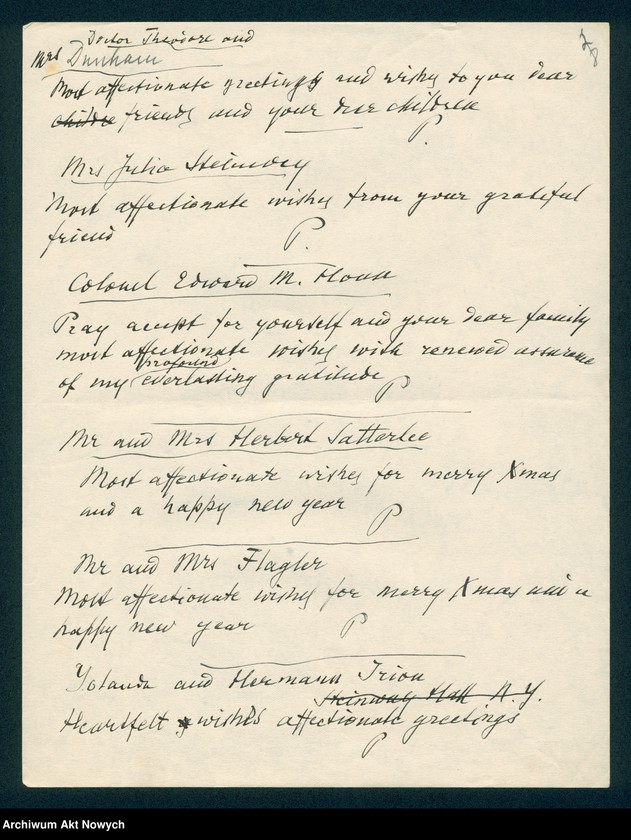 Doctor Theodore and
Mrs Dunham
28
Most affectionate greetings and wishes to you dear
childre friends and your dear children
P.
Mrs Julia Steinway
Most affectionate wishes from your grateful
friend
P.
Colonel Edward M. House
Pray accept for yourself and your dear family
most affectionate wishes with renewed assurance
profound
of my everlasting gratitude P
Mr and Mrs Herbert Satterlee
Most affectionate wishes for merry Xmas
and a happy new year P
Mr and Mrs Flagler
Most affectionate wishes for merry Xmas and a
happy new year P
Yolanda and Hermann Irion
Steinway Hall N.Y.
Heartfelt wishes affectionate greetings
P
Archiwum Akt Nowych